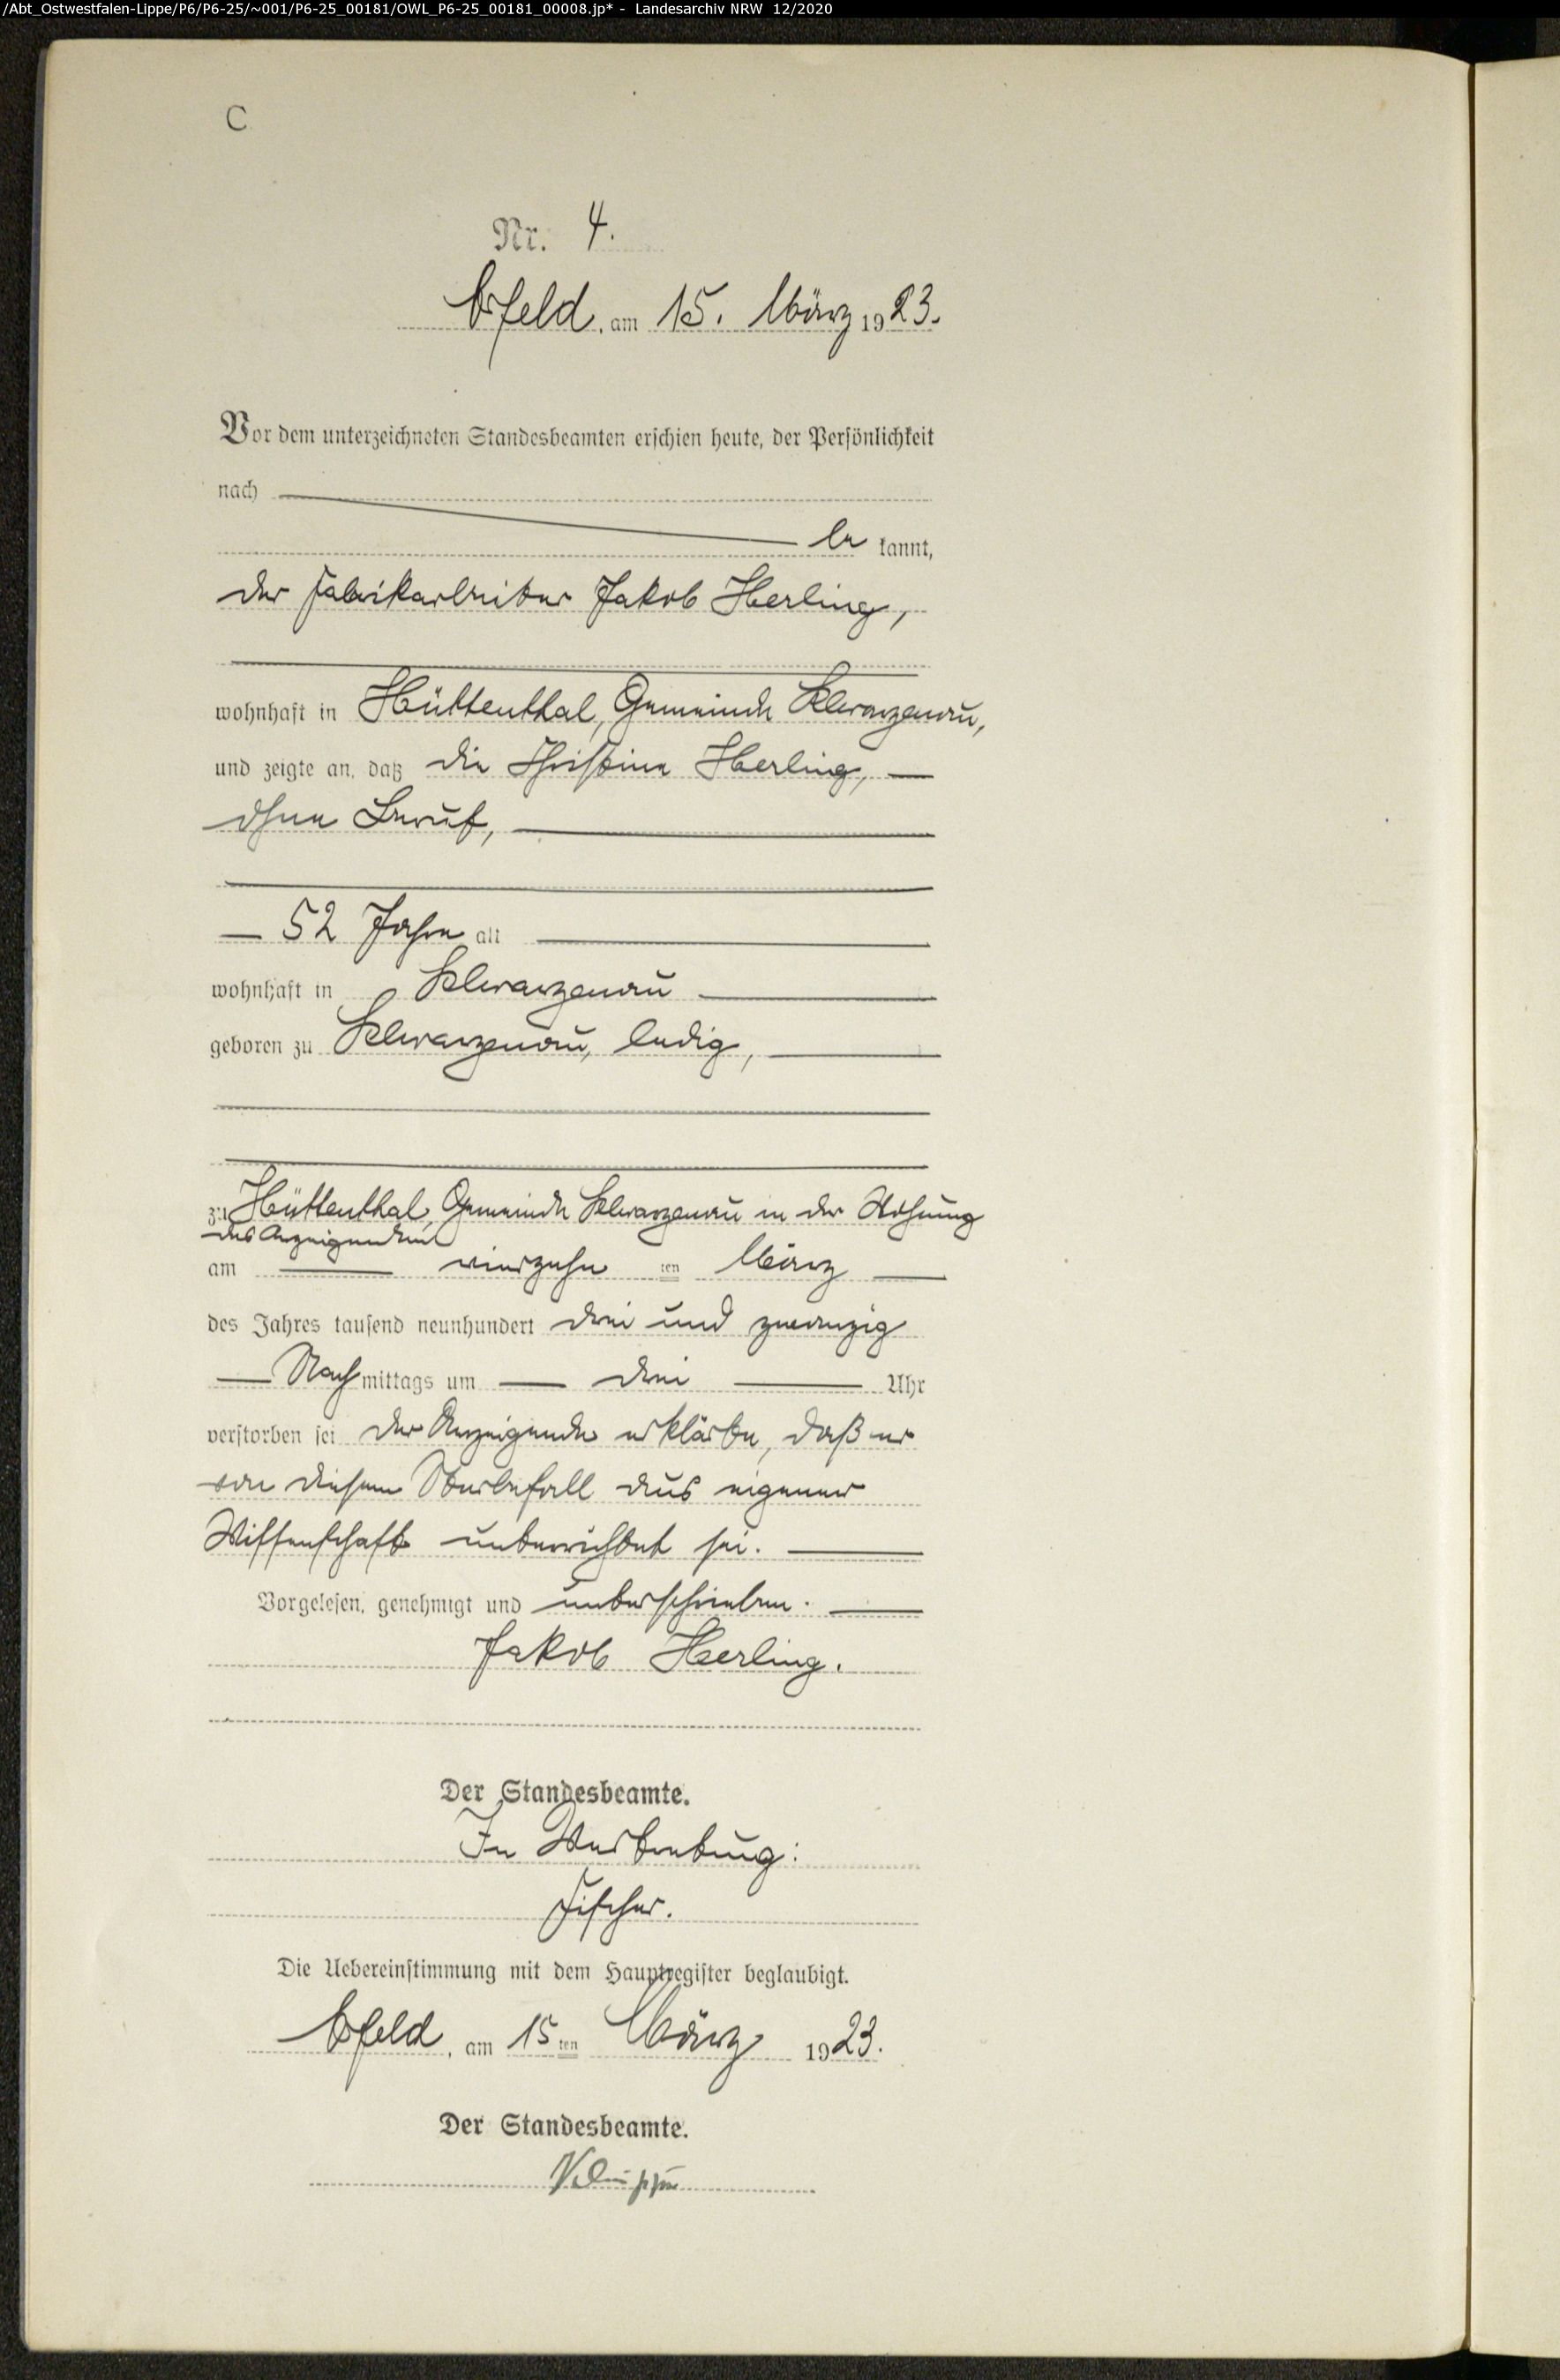 /Abt_Ostwestfalen-Lippe/P6/P6-25/~001/P6-25_00181/OWL_P6-25_00181_00008.jp* - Landesarchiv NRW 12/2020
C
Nr. 4.
am 15. März 1923.
Vor dem unterzeichneten Standesbeamten erschien heute, der Persönlichkeit
nach
be kannt,
der Fabrikarbeiter Jakob Herling,
wohnhaft in Hüttenthal, Gemeinde Schwarzenau,
und zeigte an, daß die Christine Herling,
ohne Beruf,
52 Jahre alt
wohnhaft in Schwarzenau
geboren zu Schwarzenau, ledig,
zu Hüttenthal, Gemeinde Schwarzenau in der Wohnung
des Anzeigenden
am vierzehn ten März
des Jahres tausend neunhundert drei und zwanzig
Nachmittags um drei Uhr
verstorben sei Der Anzeigende erklärte, daß er
von diesem Sterbefall aus eigener
Wissenschaft unterrichtet sei.
Vorgelesen, genehmigt und unterschrieben.
Jakob Herling.
Der Standesbeamte.
In Vertretung:
Fischer.
Die Uebereinstimmung mit dem Hauptregister beglaubigt.
am 15ten März 1923.
Der Standesbeamte.